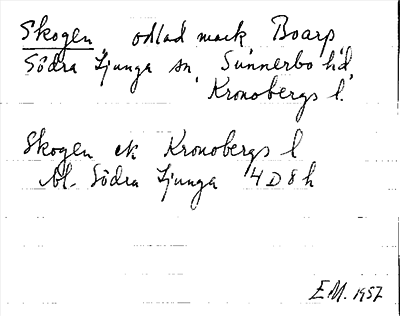 Skogen, odlad mark Boarp
Södra Ljunga sn, Sunnerbo hd,
Kronobergs l.
Skogen ek Kronobergs l
bl. Södra Ljunga 4D8h
E.M. 1957